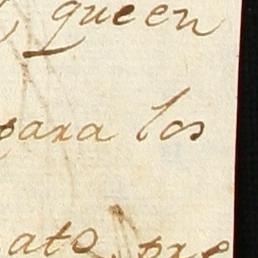 que en
para los
ato pre